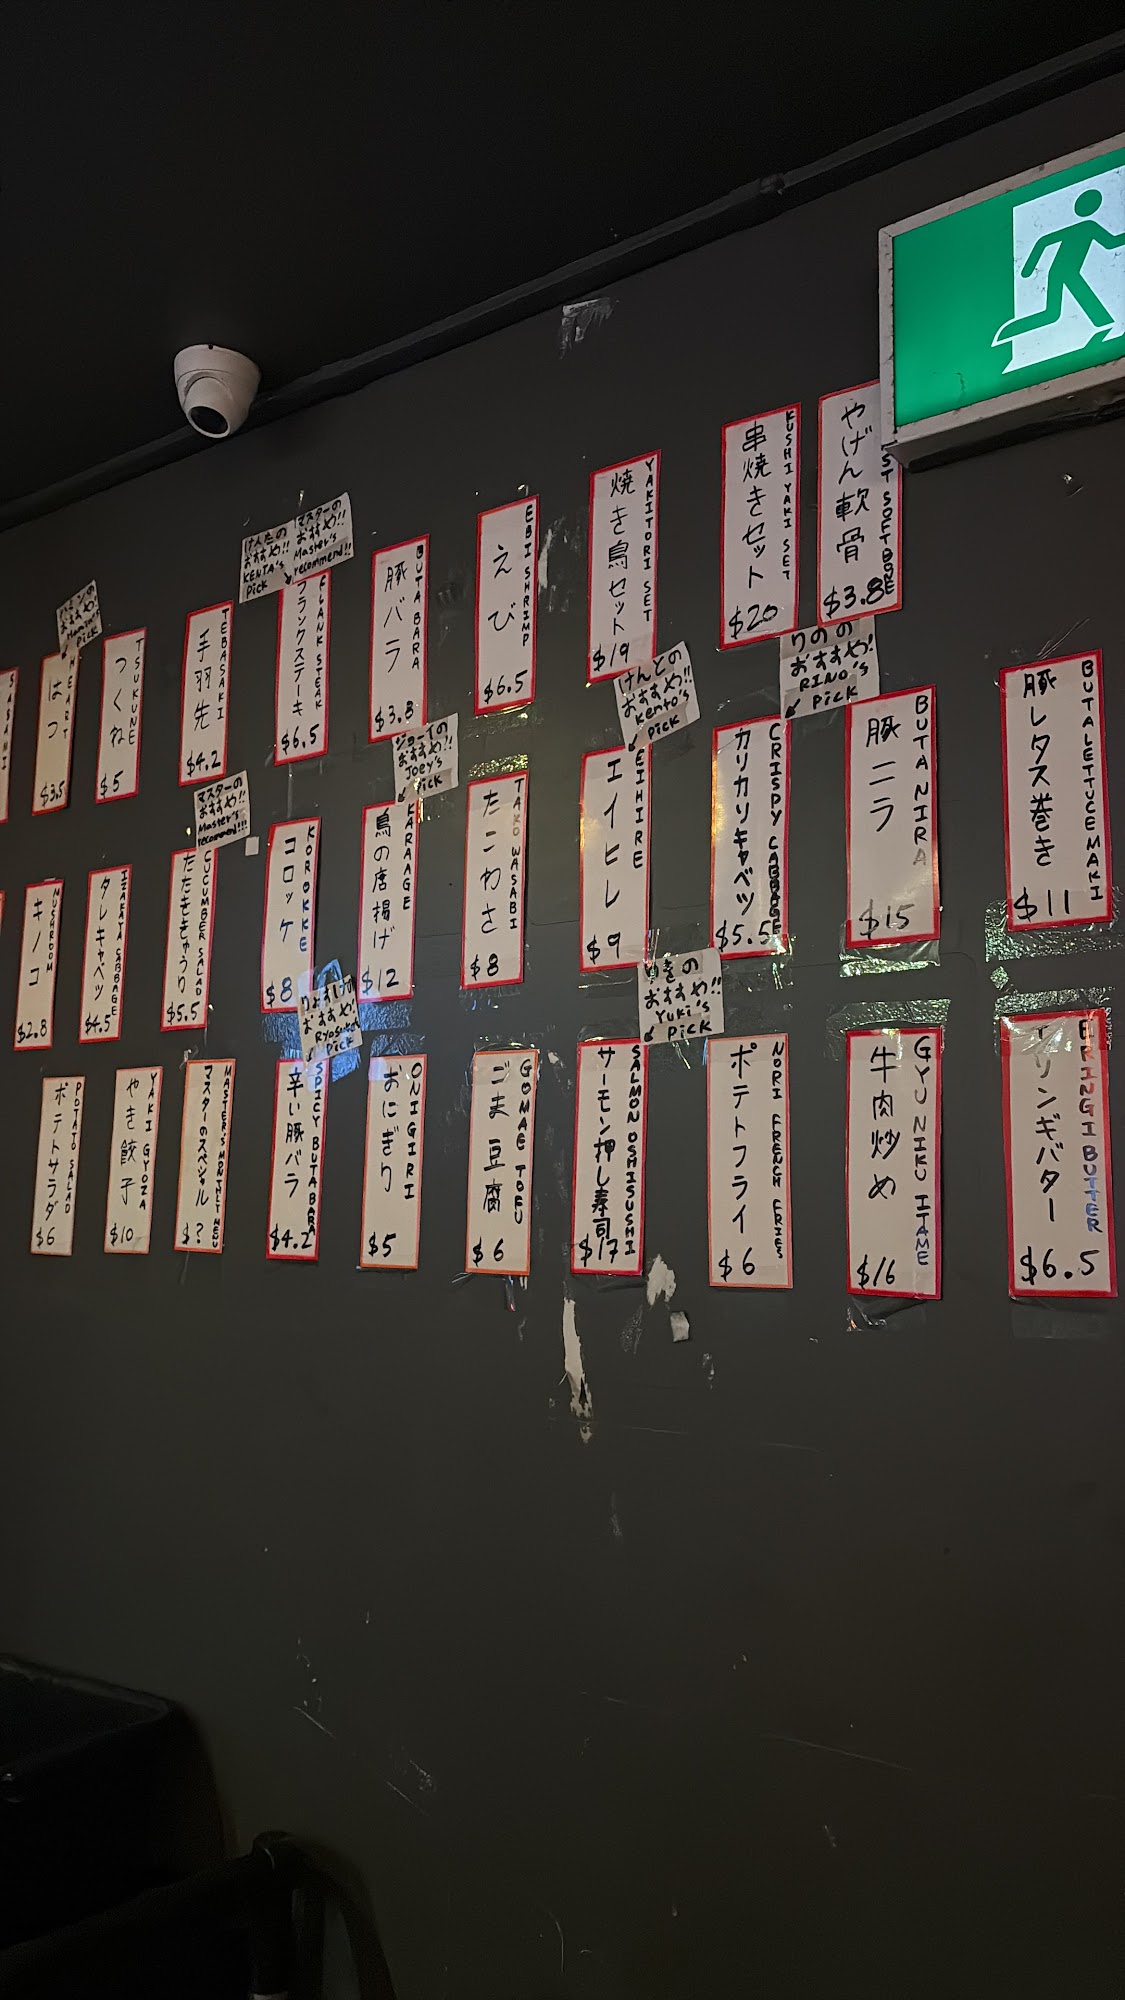 はつ
HEART
$3.5
つくね
TSUKUNE
$5
手羽先
TEBASAKI
$4.2
けんたの
おすすめ!!
KENTA's
Pick
マスターの
おすすめ!!
Master's
recommend!!
フランクステーキ
FLANK STEAK
$6.5
豚バラ
BUTA BARA
$3.8
えび
EBI SHRIMP
$6.5
焼き鳥セット
YAKITORI SET
$19
串焼きセット
KUSHI YAKI SET
$20
やげん軟骨
ST SOFT BONE
$3.8
キノコ
MUSHROOM
$2.8
タレキャベツ
IZAKAYA CABBAGE
$4.5
マスターの
おすすめ!!
Master's
recommend!!!
たたききゅうり
CUCUMBER SALAD
$5.5
コロッケ
KOROKKE
$8
ジョーイの
おすすめ!!
Joey's
Pick
鳥の唐揚げ
KARAAGE
$12
たこわさ
TAKO WASABI
$8
けんとの
おすすめ!!
Kento's
Pick
エイヒレ
EIHIRE
$9
カリカリキャベツ
CRISPY CABBAGE
$5.5
りのの
おすすめ!!
RINO's
Pick
豚ニラ
BUTA NIRA
$15
豚レタス巻き
BUTA LETTUCE MAKI
$11
ポテトサラダ
POTATO SALAD
$6
やき餃子
YAKI GYOZA
$10
マスターのスペシャル
MASTER'S MONTHLY MENU
$?
おすすめ!
Pick
辛い豚バラ
SPICY BUTA BARA
$4.2
おにぎり
ONIGIRI
$5
ごま豆腐
GOMAE TOFU
$6
おすすめ!!
Yuki's
Pick
サーモン押し寿司
SALMON OSHISUSHI
$17
ポテトフライ
NORI FRENCH FRIES
$6
牛肉炒め
GYU NIKU ITAME
$16
リンギバター
ERINGI BUTTER
$6.5